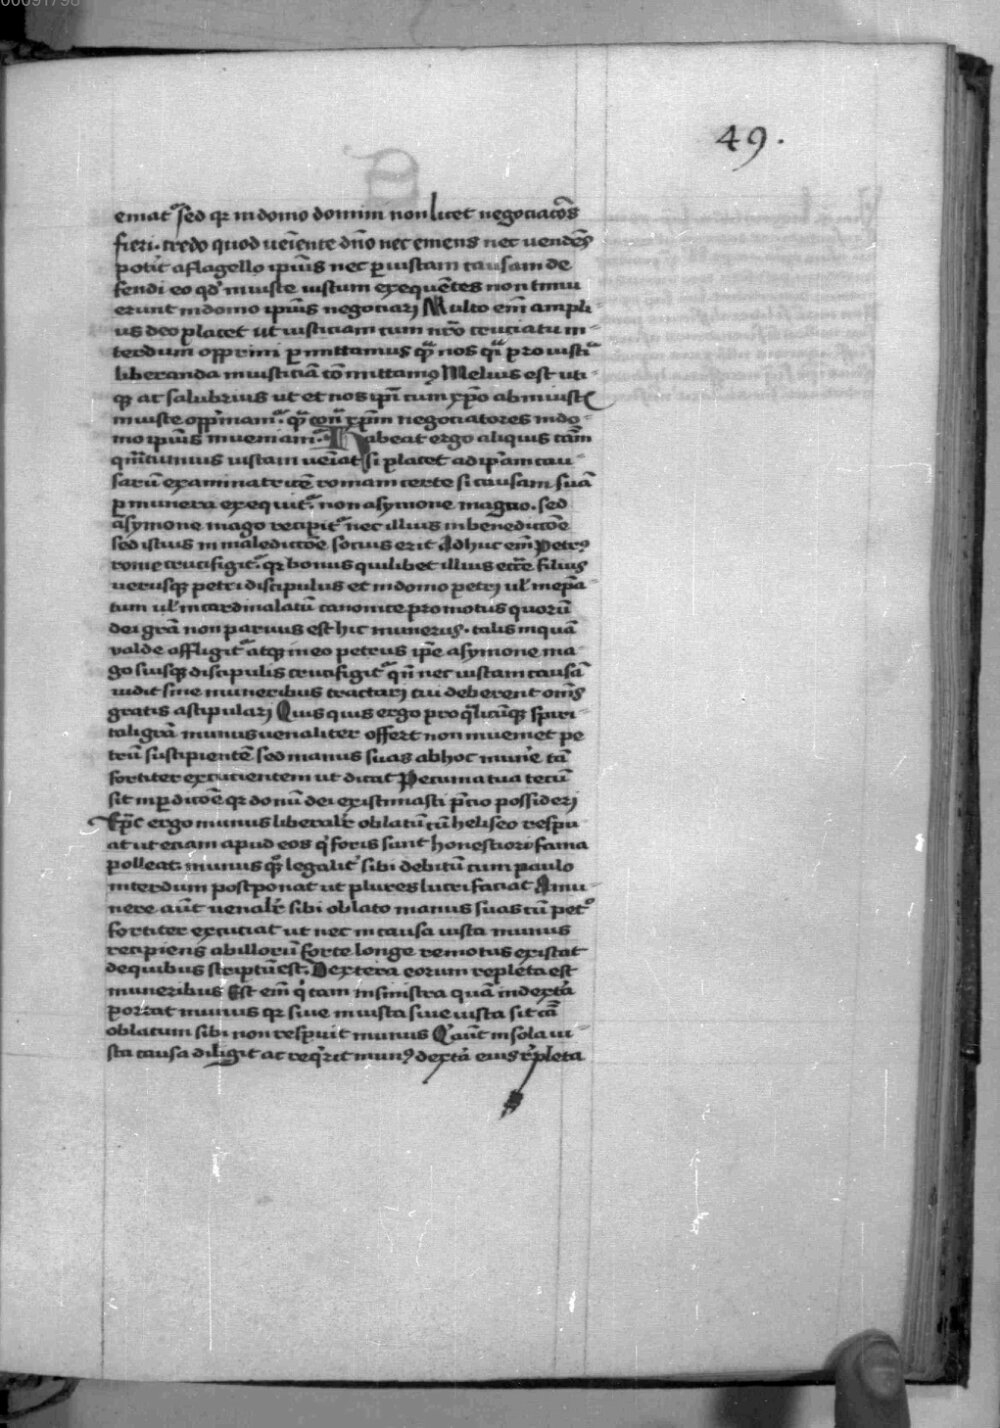 00091798
49.
emat᷒ sed qr in domo domini non licet negociacōēs
fieri. credo quod ueīente dn̄o nec emens nec uendēs
potit᷒ a flagello ipīus nec p iustam causam de
fendi eo qd᷒ iniuste iustum exequētes non timu
erunt in domo ipīus negociarj Multo em̄ ampli-
us deo placet ut iusticiam cum nr̄o cruciatu in-
terdum opprimi pmittamus qᷓ nos qͣi pro iustiͣ
liberanda iniusticiā cōmittamꝰ Melius est uti-
qꝫ ac salubrius ut et nos ipī cum xp̄o ab iniustis
iniuste opprimam᷒ qᷓ contͣ xp̄m negociatores in do-
mo ipīus inueniam᷒ Habeat ergo aliquis cām
quātumuis iustam ueīat si placet ad ipām cau-
sarū examinatricē romam certe si causam suā
p munera exequit᷒ non a symone magno. sed
a symone mago recipit᷒ nec illius in benedictōe
sed istius in maledictōe socius erit Adhuc em̄ Petrꝰ
rome crucifigit᷒ qr bonus quilibet illius eccē filius
uerusqꝫ petri discipulus et in domo petrj ul᷒ in ep̄a-
tum ul᷒ in cardinalatū canonice promotus quorū
dei grā non paruus est hic numerus. talis inquā
valde affligit᷒ atqꝫ in eo petrus ip̄e a symone ma-
go suisqꝫ discipulis crucifigit᷒ qn̄ nec iustam causā
uidit sine muneribus tractarj cui deberent om̄s
gratis astipularj Quis quis ergo pro qͣlicūqꝫ spiri-
tali grā munus uenaliter offert non inueniet pe
trū suscipientē sed manus suas ab hoc mun᷒e tā
fortiter excucientem ut dicat Pecunia tua tecū
sit in pdicōē qr donū dei existimasti p̄cio possiderj
Ep̄c ergo munus liberalr̄ oblatū cū heliseo respu
at ut eciam apud eos qͥ foris sunt honestiori fama
polleat. munus qꝫ legalit᷒ sibi debitū cum paulo
interdum postponat ut plures lucrifaciat A mu-
nere aūt uenalr̄ sibi oblato manus suas cū pet᷒o
fortiter excuciat ut nec in causa iusta munus
recipiens ab illorū sorte longe remotus existat
de quibus scriptū est. Dextera eorum repleta est
muneribus Est em̄ qͥ tam in sinistra quā in dext᷒a
portat munus qr siue iniusta siue iusta sit cā
oblatum sibi non respuit munus Qͥ aūt in sola iu-
sta causa diligit ac reqͥrit munꝰ dext᷒a eius r᷒pleta